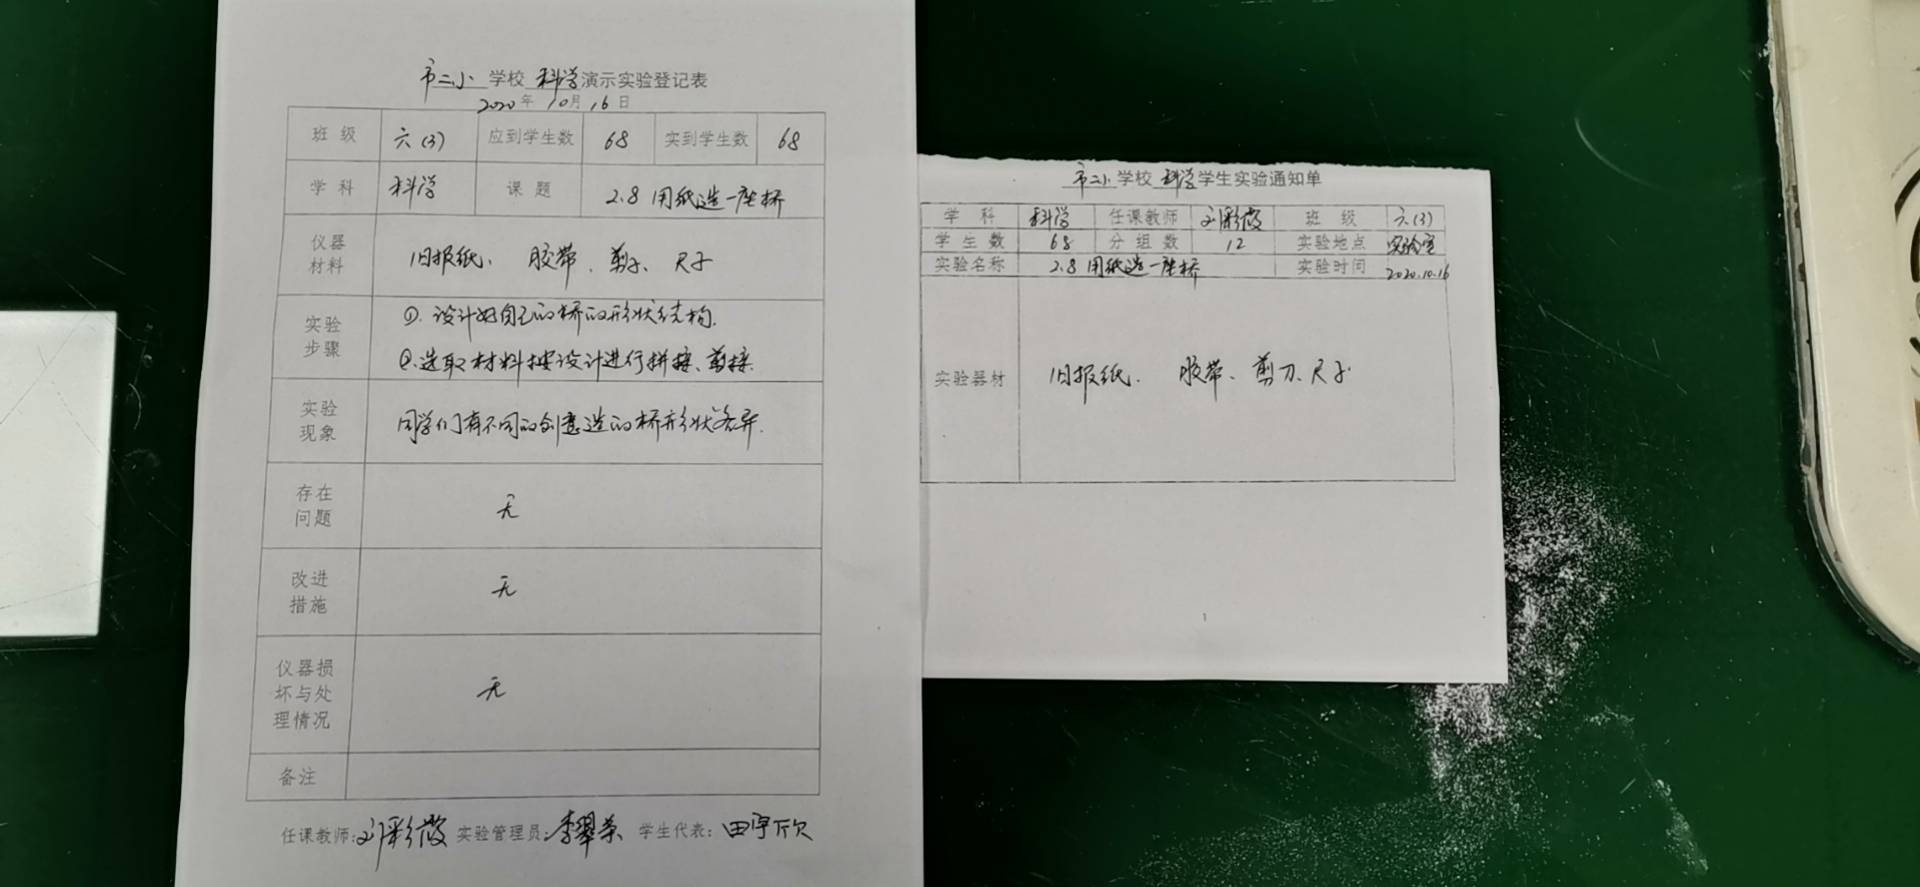 市二小 学校 科学 演示实验登记表
2020年 10月 16日
班级 六(3) 应到学生数 68 实到学生数 68
学科 科学 课题 2.8 用纸造一座桥
仪器材料 旧报纸、 胶带、剪子、 尺子
实验步骤 ①. 设计好自己的桥的形状结构.
②. 选取材料按设计进行拼接、剪接.
实验现象 同学们有不同的创意造的桥形状各异.
存在问题 无
改进措施 无
仪器损坏与处理情况 无
备注
任课教师: 刘彩霞 实验管理员: 李翠荣 学生代表: 田宇欣
市二小 学校 科学 学生实验通知单
学科 科学 任课教师 刘彩霞 班级 六(3)
学生数 68 分组数 12 实验地点 实验室
实验名称 2.8 用纸造一座桥 实验时间 2020.10.16
实验器材 旧报纸、 胶带、剪刀、尺子
1